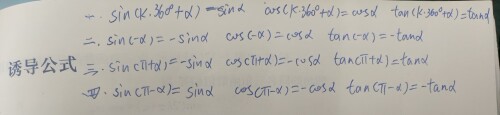 一. sin(k·360°+α)=sinα cos(k·360°+α)=cosα tan(k·360°+α)=tanα
二. sin(-α)=-sinα cos(-α)=cosα tan(-α)=-tanα
诱导公式
三. sin(π+α)=-sinα cos(π+α)=-cosα tan(π+α)=tanα
四. sin(π-α)=sinα cos(π-α)=-cosα tan(π-α)=-tanα